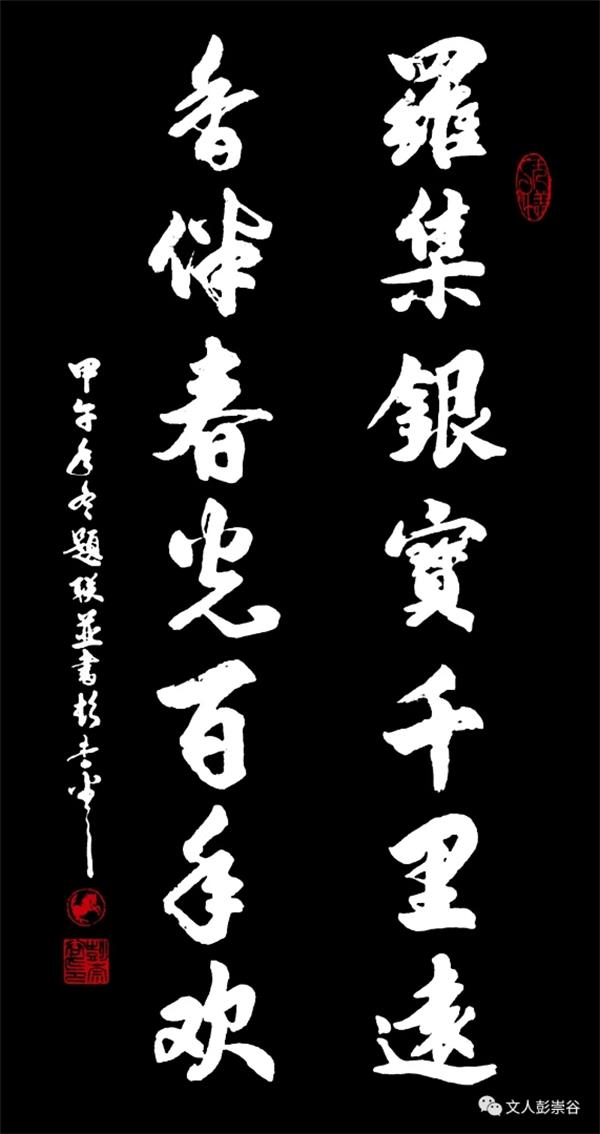 羅集銀寶千里遠
香伴春光百年欢
甲午年冬題联並書彭崇谷
文人彭崇谷